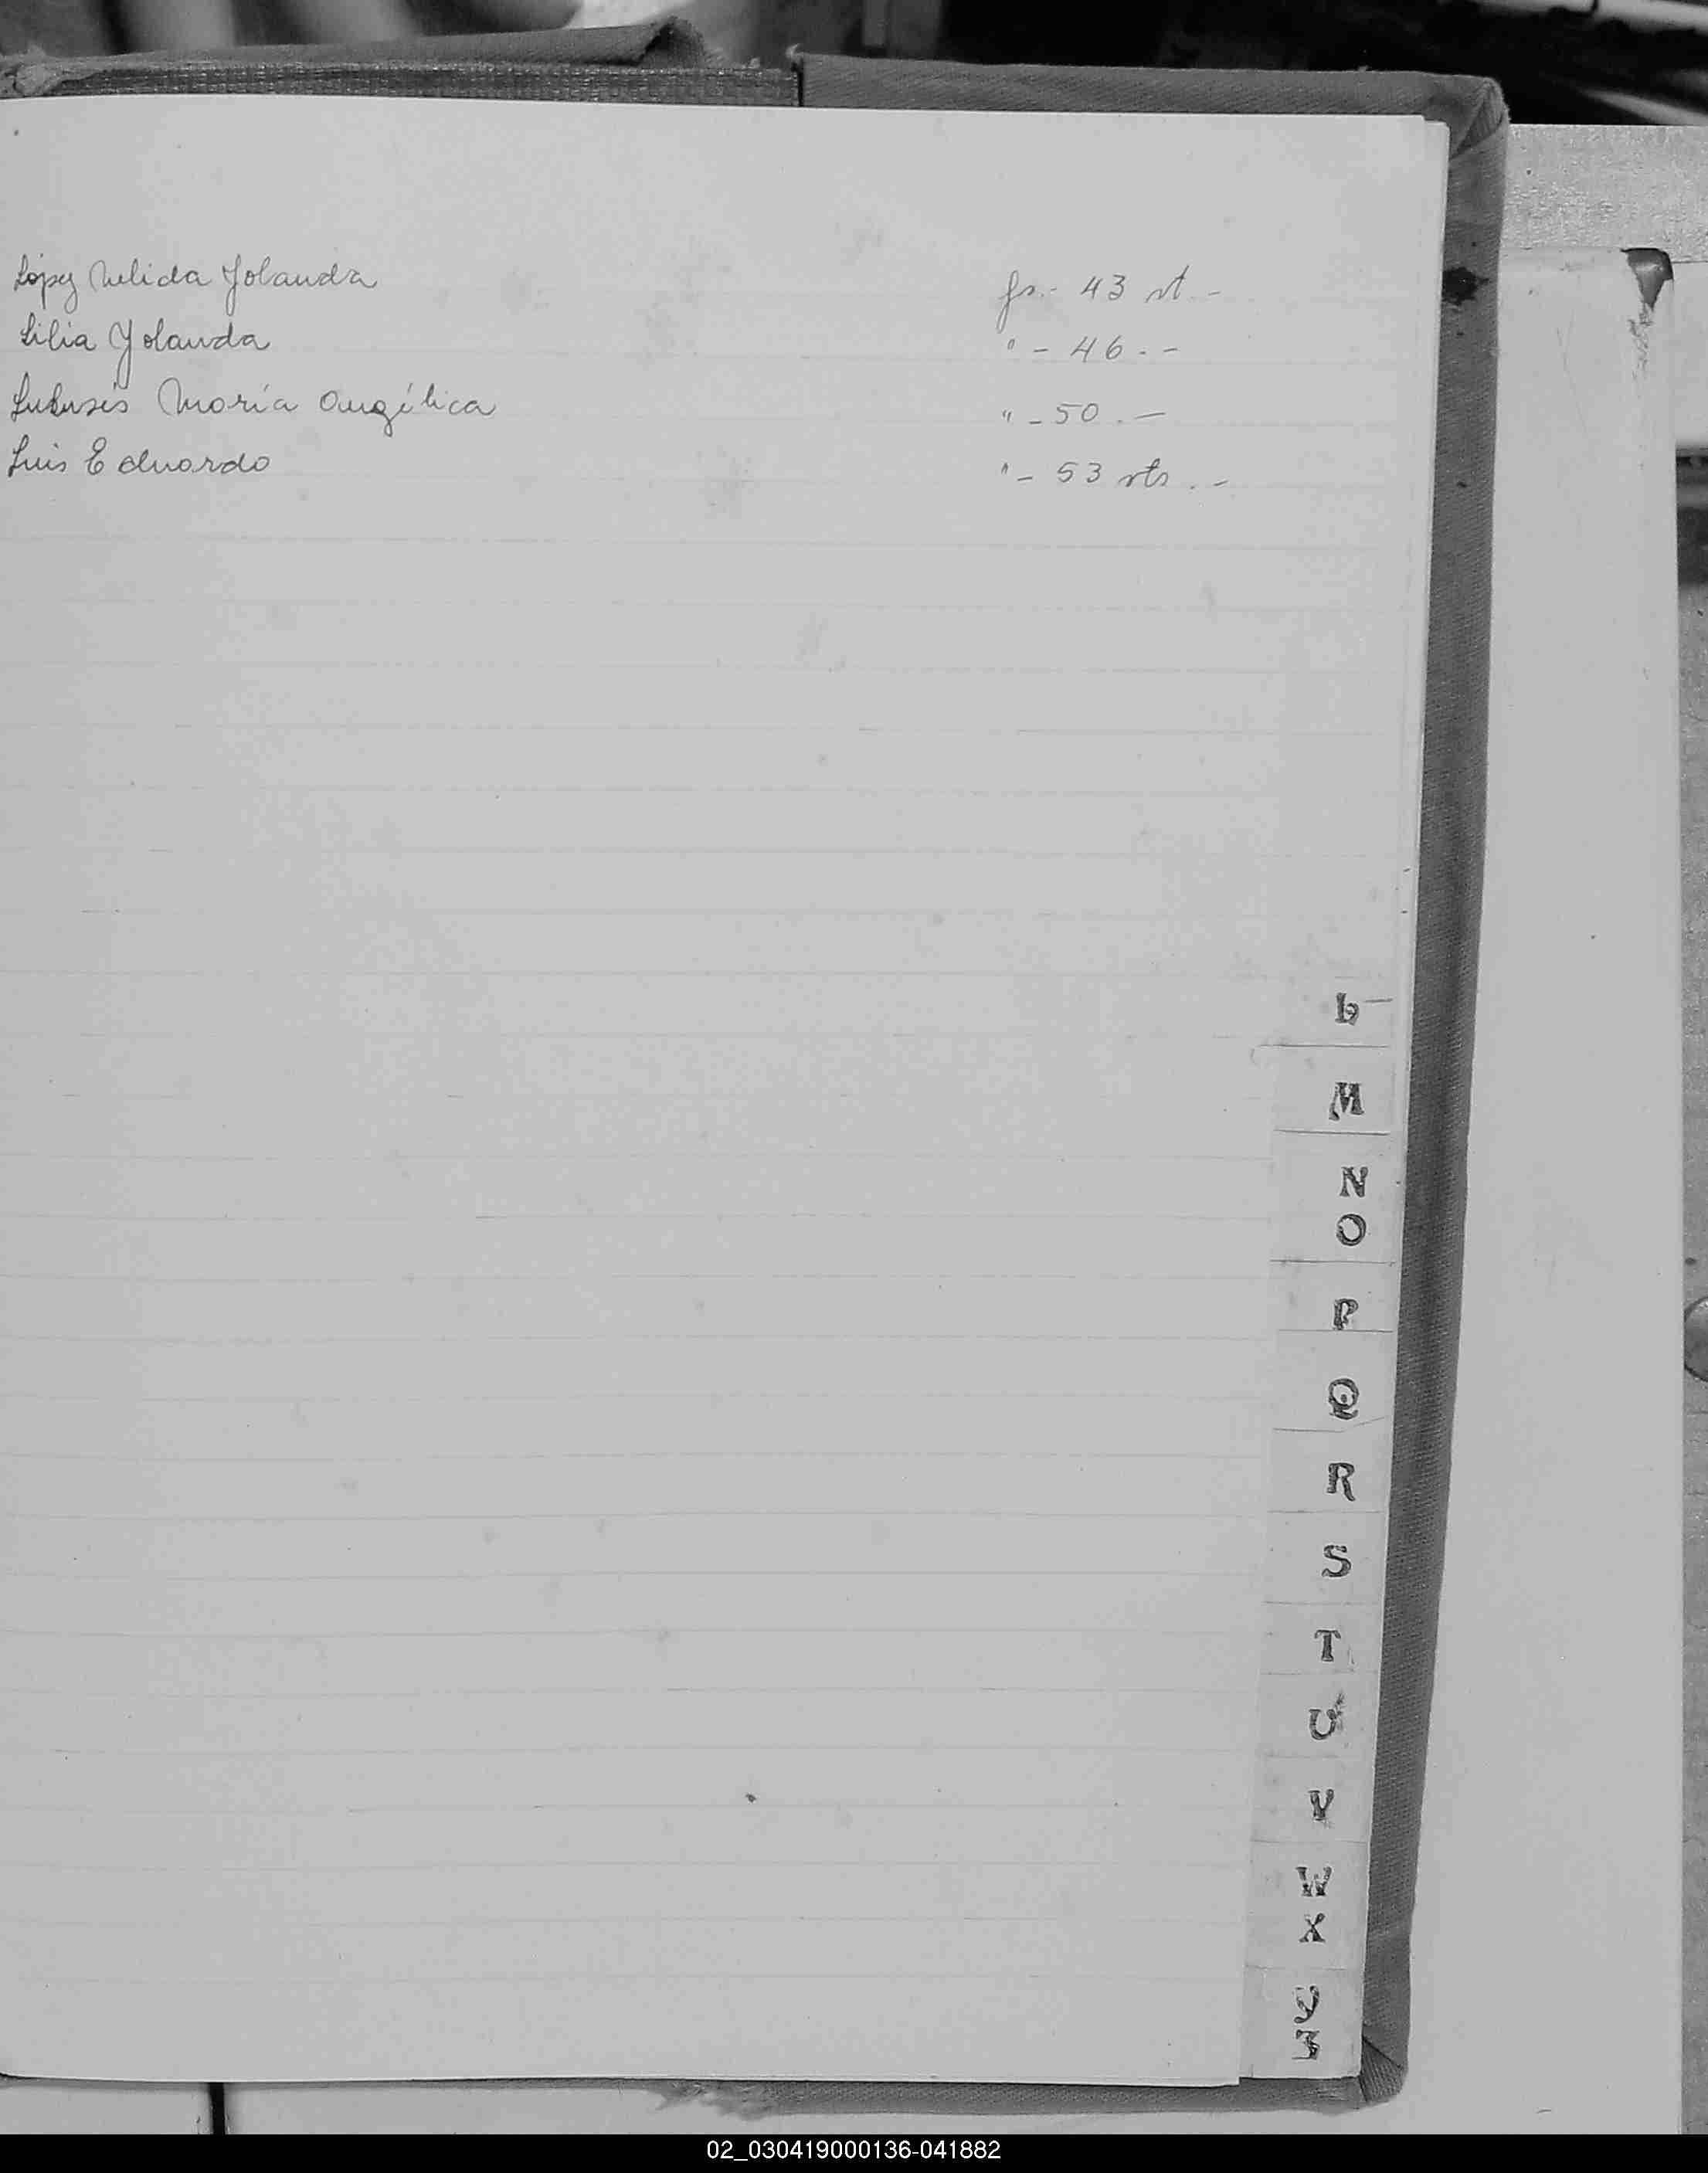 López Nelida Yolanda fs.- 43 vt.-
Lilia Yolanda " - 46.-
María Angélica " - 50.-
Luis Eduardo " - 53 vts.-
L
M
N
O
P
Q
R
S
T
U
V
W
X
Y
Z
02_030419000136-041882